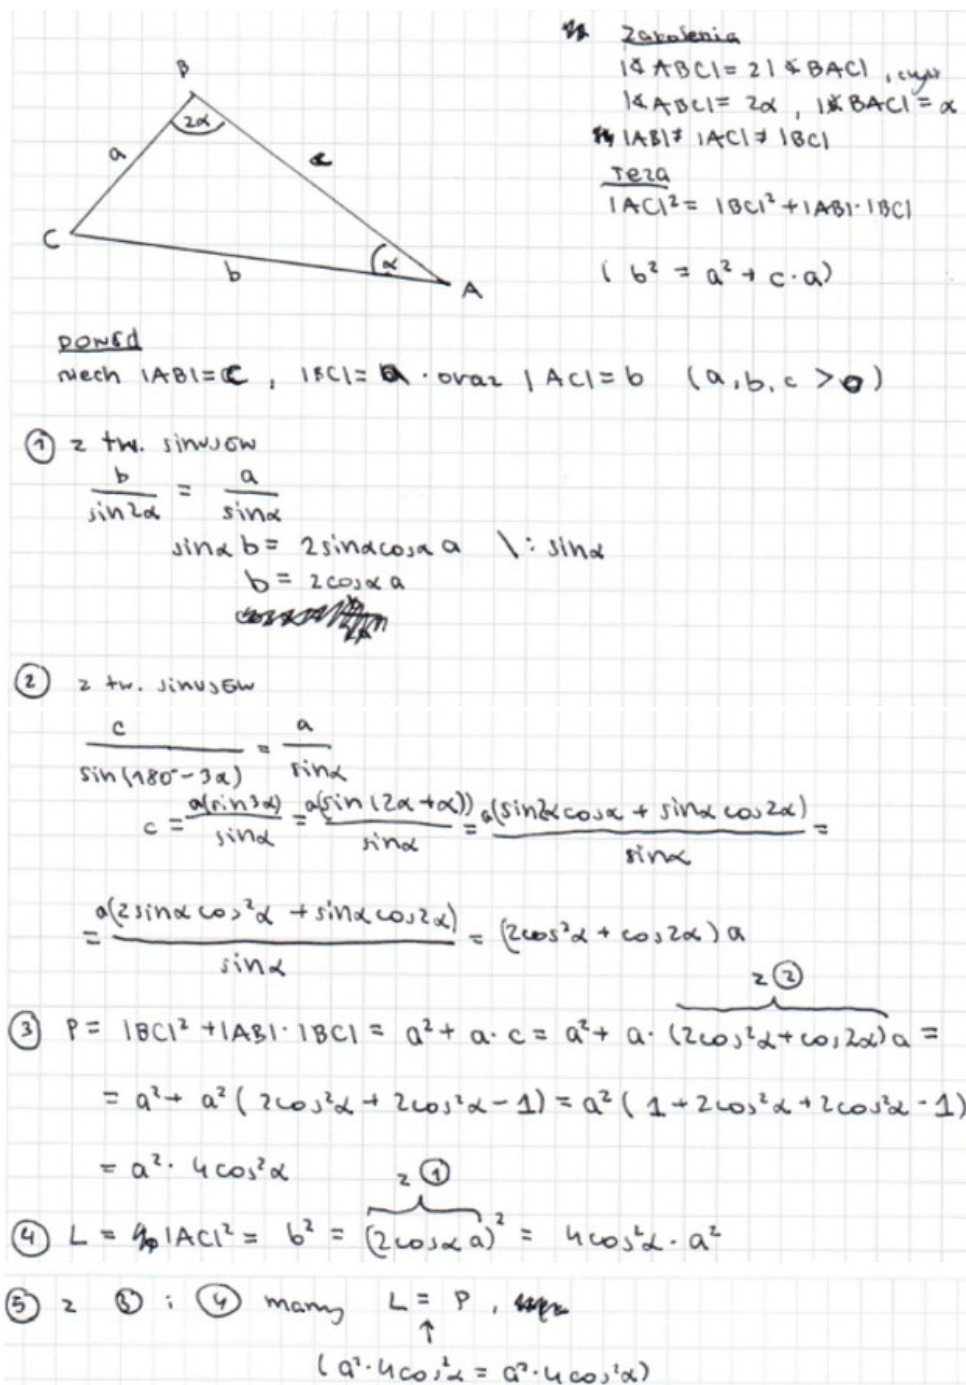 Założenia
|∢ABC| = 2|∢BAC|, czyli
|∢ABC| = 2α, |∢BAC| = α
|AB| ≠ |AC| ≠ |BC|
Teza
|AC|² = |BC|² + |AB|·|BC|
(b² = a² + c·a)
B
2α
a
c
C
α
b
A
DOWÓD
niech |AB| = c, |BC| = a oraz |AC| = b (a, b, c > 0)
① z tw. sinusów
b/sin2α = a/sinα
sinα b = 2sinαcosα a \: sinα
b = 2cosα a
② z tw. sinusów
c/sin(180° - 3α) = a/sinα
c = a(sin3α)/sinα = a(sin(2α+α))/sinα = a(sin2αcosα + sinαcos2α)/sinα =
= a(2sinαcos²α + sinαcos2α)/sinα = (2cos²α + cos2α)a
z ②
③ P = |BC|² + |AB|·|BC| = a² + a·c = a² + a·(2cos²α + cos2α)a =
= a² + a²(2cos²α + 2cos²α - 1) = a²(1 + 2cos²α + 2cos²α - 1)
= a²·4cos²α
z ①
④ L = |AC|² = b² = (2cosα a)² = 4cos²α·a²
⑤ z ③ i ④ mamy L = P,
↑
(a²·4cos²α = a²·4cos²α)